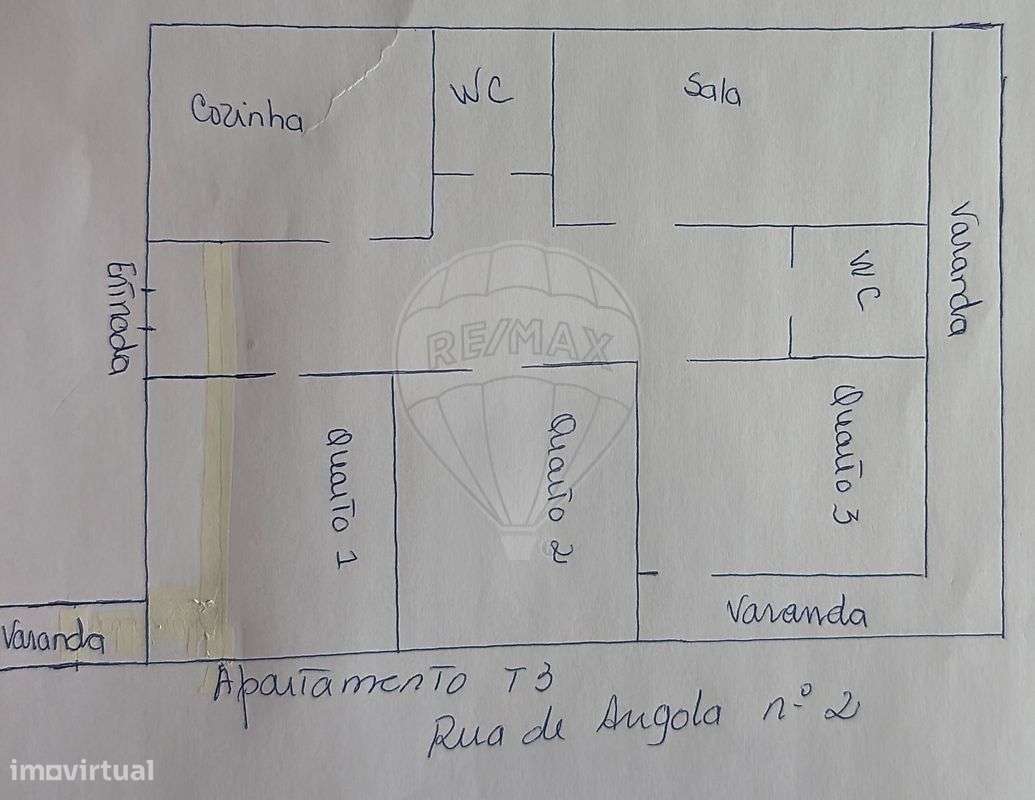 Cozinha
WC
Sala
Varanda
WC
Entrada
RE/MAX
Quarto 1
Quarto 2
Quarto 3
Varanda
Varanda
Apartamento T3
Rua de Angola n.º 2
imovirtual